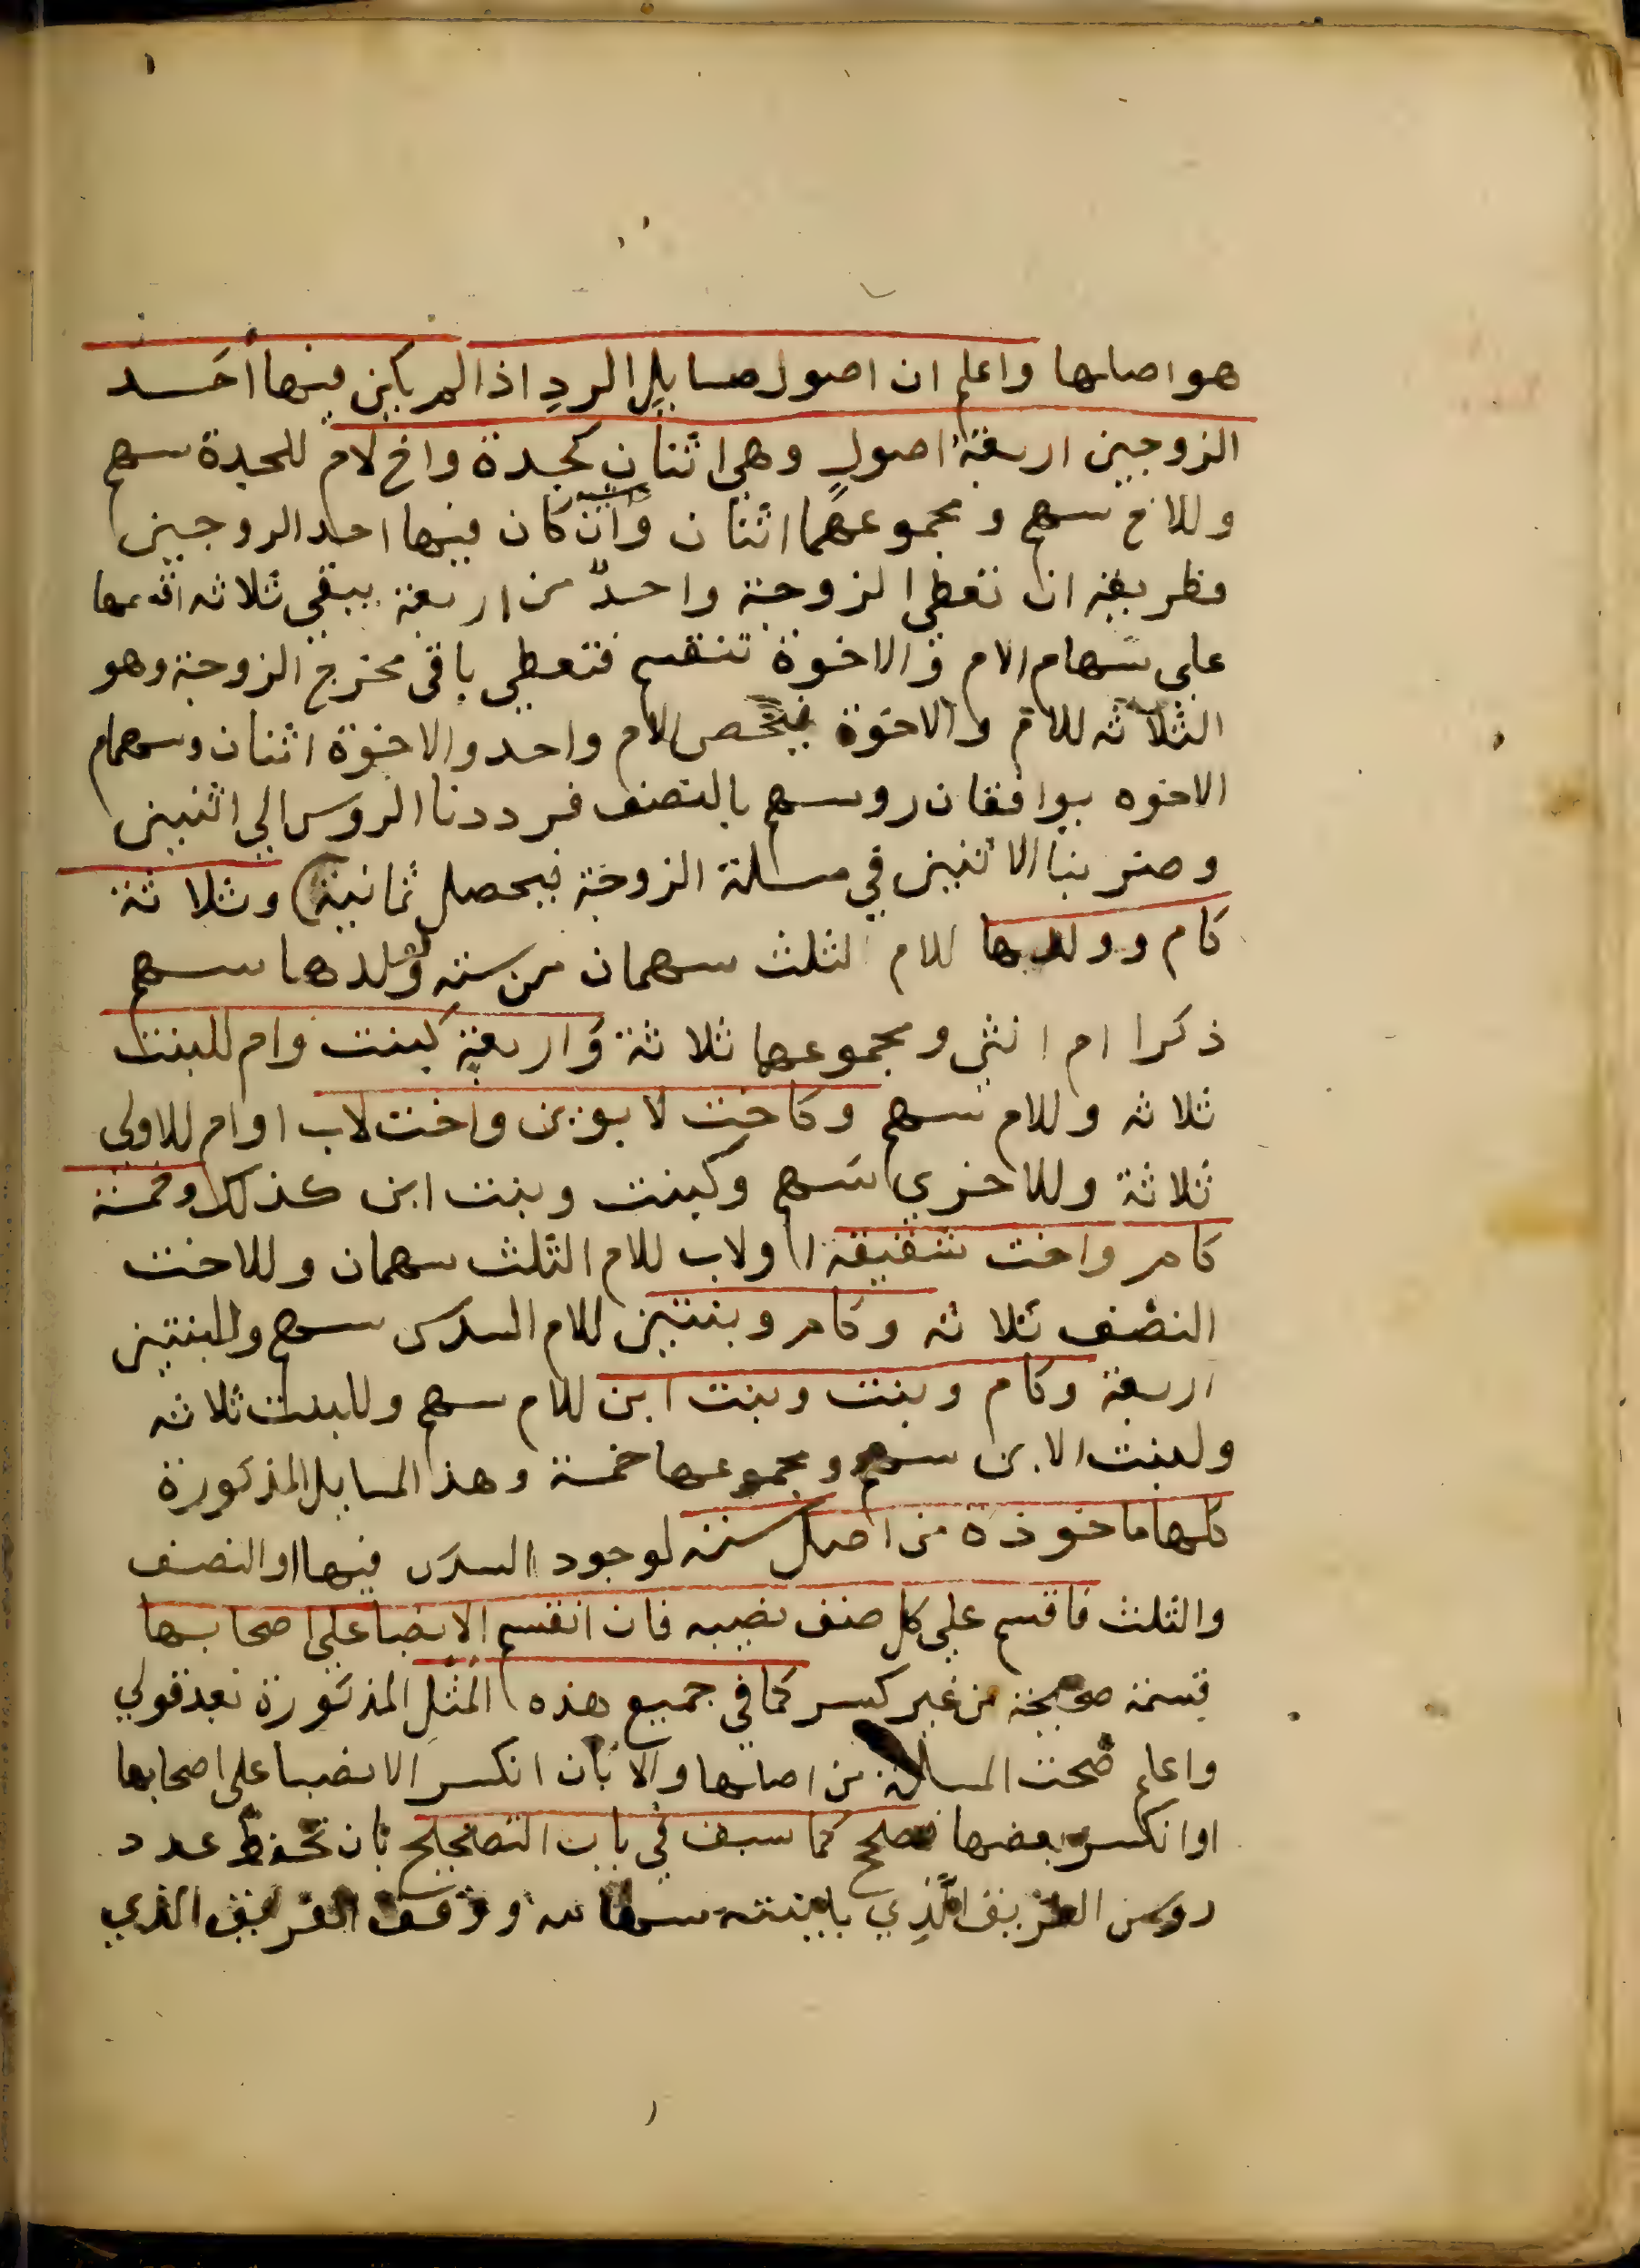 ١
هو اصلها واعلم ان اصول مسايل الرد اذا لم يكن فيها أحد
الزوجين اربعة اصول وهي اثنان كجدة واخ لام للجدة سهم
وللاخ سهم ومجموعهما اثنان وان كان فيها احد الزوجين
فطريقه ان تعطي الزوجة واحدا من اربعة يبقي ثلاثه اقسمها
علي سهام الام والاخوة تنقسم فتعطي باقي مخرج الزوجة وهو
الثلاثه للام والاخوة فيخص الام واحد والاخوة اثنان وسهام
الاخوه يوافقان روسهم بالنصف فرددنا الروس الي اثنين
وضربنا الاثنين في مسلة الزوجة فيحصل ثمانية وثلاثة
كام وولديها للام الثلث سهمان من سته ولولدها سهم
ذكرا ام انثي ومجموعها ثلاثة واربعة كبنت وام للبنت
ثلاثه وللام سهم وكاخت لابوين واخت لاب اوام للاولي
ثلاثة وللاخري سهم وكبنت وبنت ابن كذلك وخمسة
كام واخت شقيقه اولاب للام الثلث سهمان وللاخت
النصف ثلاثه وكام وبنتين للام السدس سهم وللبنتين
اربعة وكام وبنت وبنت ابن للام سهم وللبنت ثلاثه
ولبنت الابن سهم ومجموعها خمسة وهذ المسايل المذكورة
كلها ماخوذة من اصل سته لوجود السدس فيها او النصف
والثلث فاقسم علي كل صنف نصيبه فان انقسم الانصبا علي اصحابها
قسمة صحيحة من غير كسر كما في جميع هذه المثل المذكورة بعد قولي
واعلم صحت المسالة من اصلها والا بان انكسر الانصبا علي اصحابها
او انكسر بعضها فصحح كما سبق في باب التصحيح بان تحفظ عدد
روس الفريق الذي باينته سهامه ووفق الفريق الذي